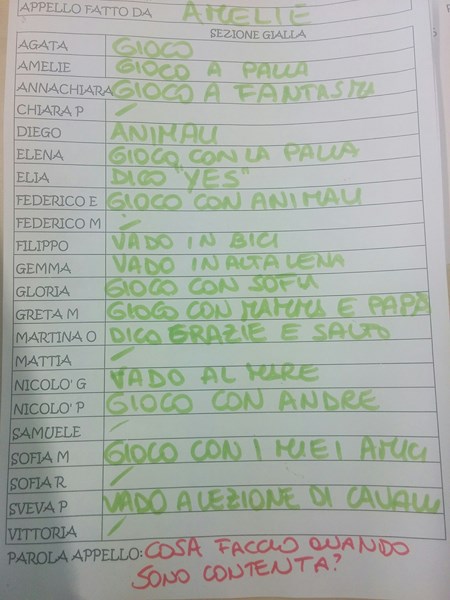 APPELLO FATTO DA AMELIE
SEZIONE GIALLA
AGATA GIOCO
AMELIE GIOCO A PALLA
ANNACHIARA GIOCO A FANTASMI
CHIARA P /
DIEGO ANIMALI
ELENA GIOCO CON LA PALLA
ELIA DICO "YES"
FEDERICO E GIOCO CON ANIMALI
FEDERICO M /
FILIPPO VADO IN BICI
GEMMA VADO IN ALTALENA
GLORIA GIOCO CON SOFU
GRETA M GIOCO CON MAMMA E PAPÀ
MARTINA O DICO GRAZIE E SALTO
MATTIA /
NICOLO' G VADO AL MARE
NICOLO' P GIOCO CON ANDRE
SAMUELE /
SOFIA M GIOCO CON I MIEI AMICI
SOFIA R /
SVEVA P VADO A LEZIONE DI CAVALLI
VITTORIA /
PAROLA APPELLO: COSA FACCIO QUANDO
SONO CONTENTA?